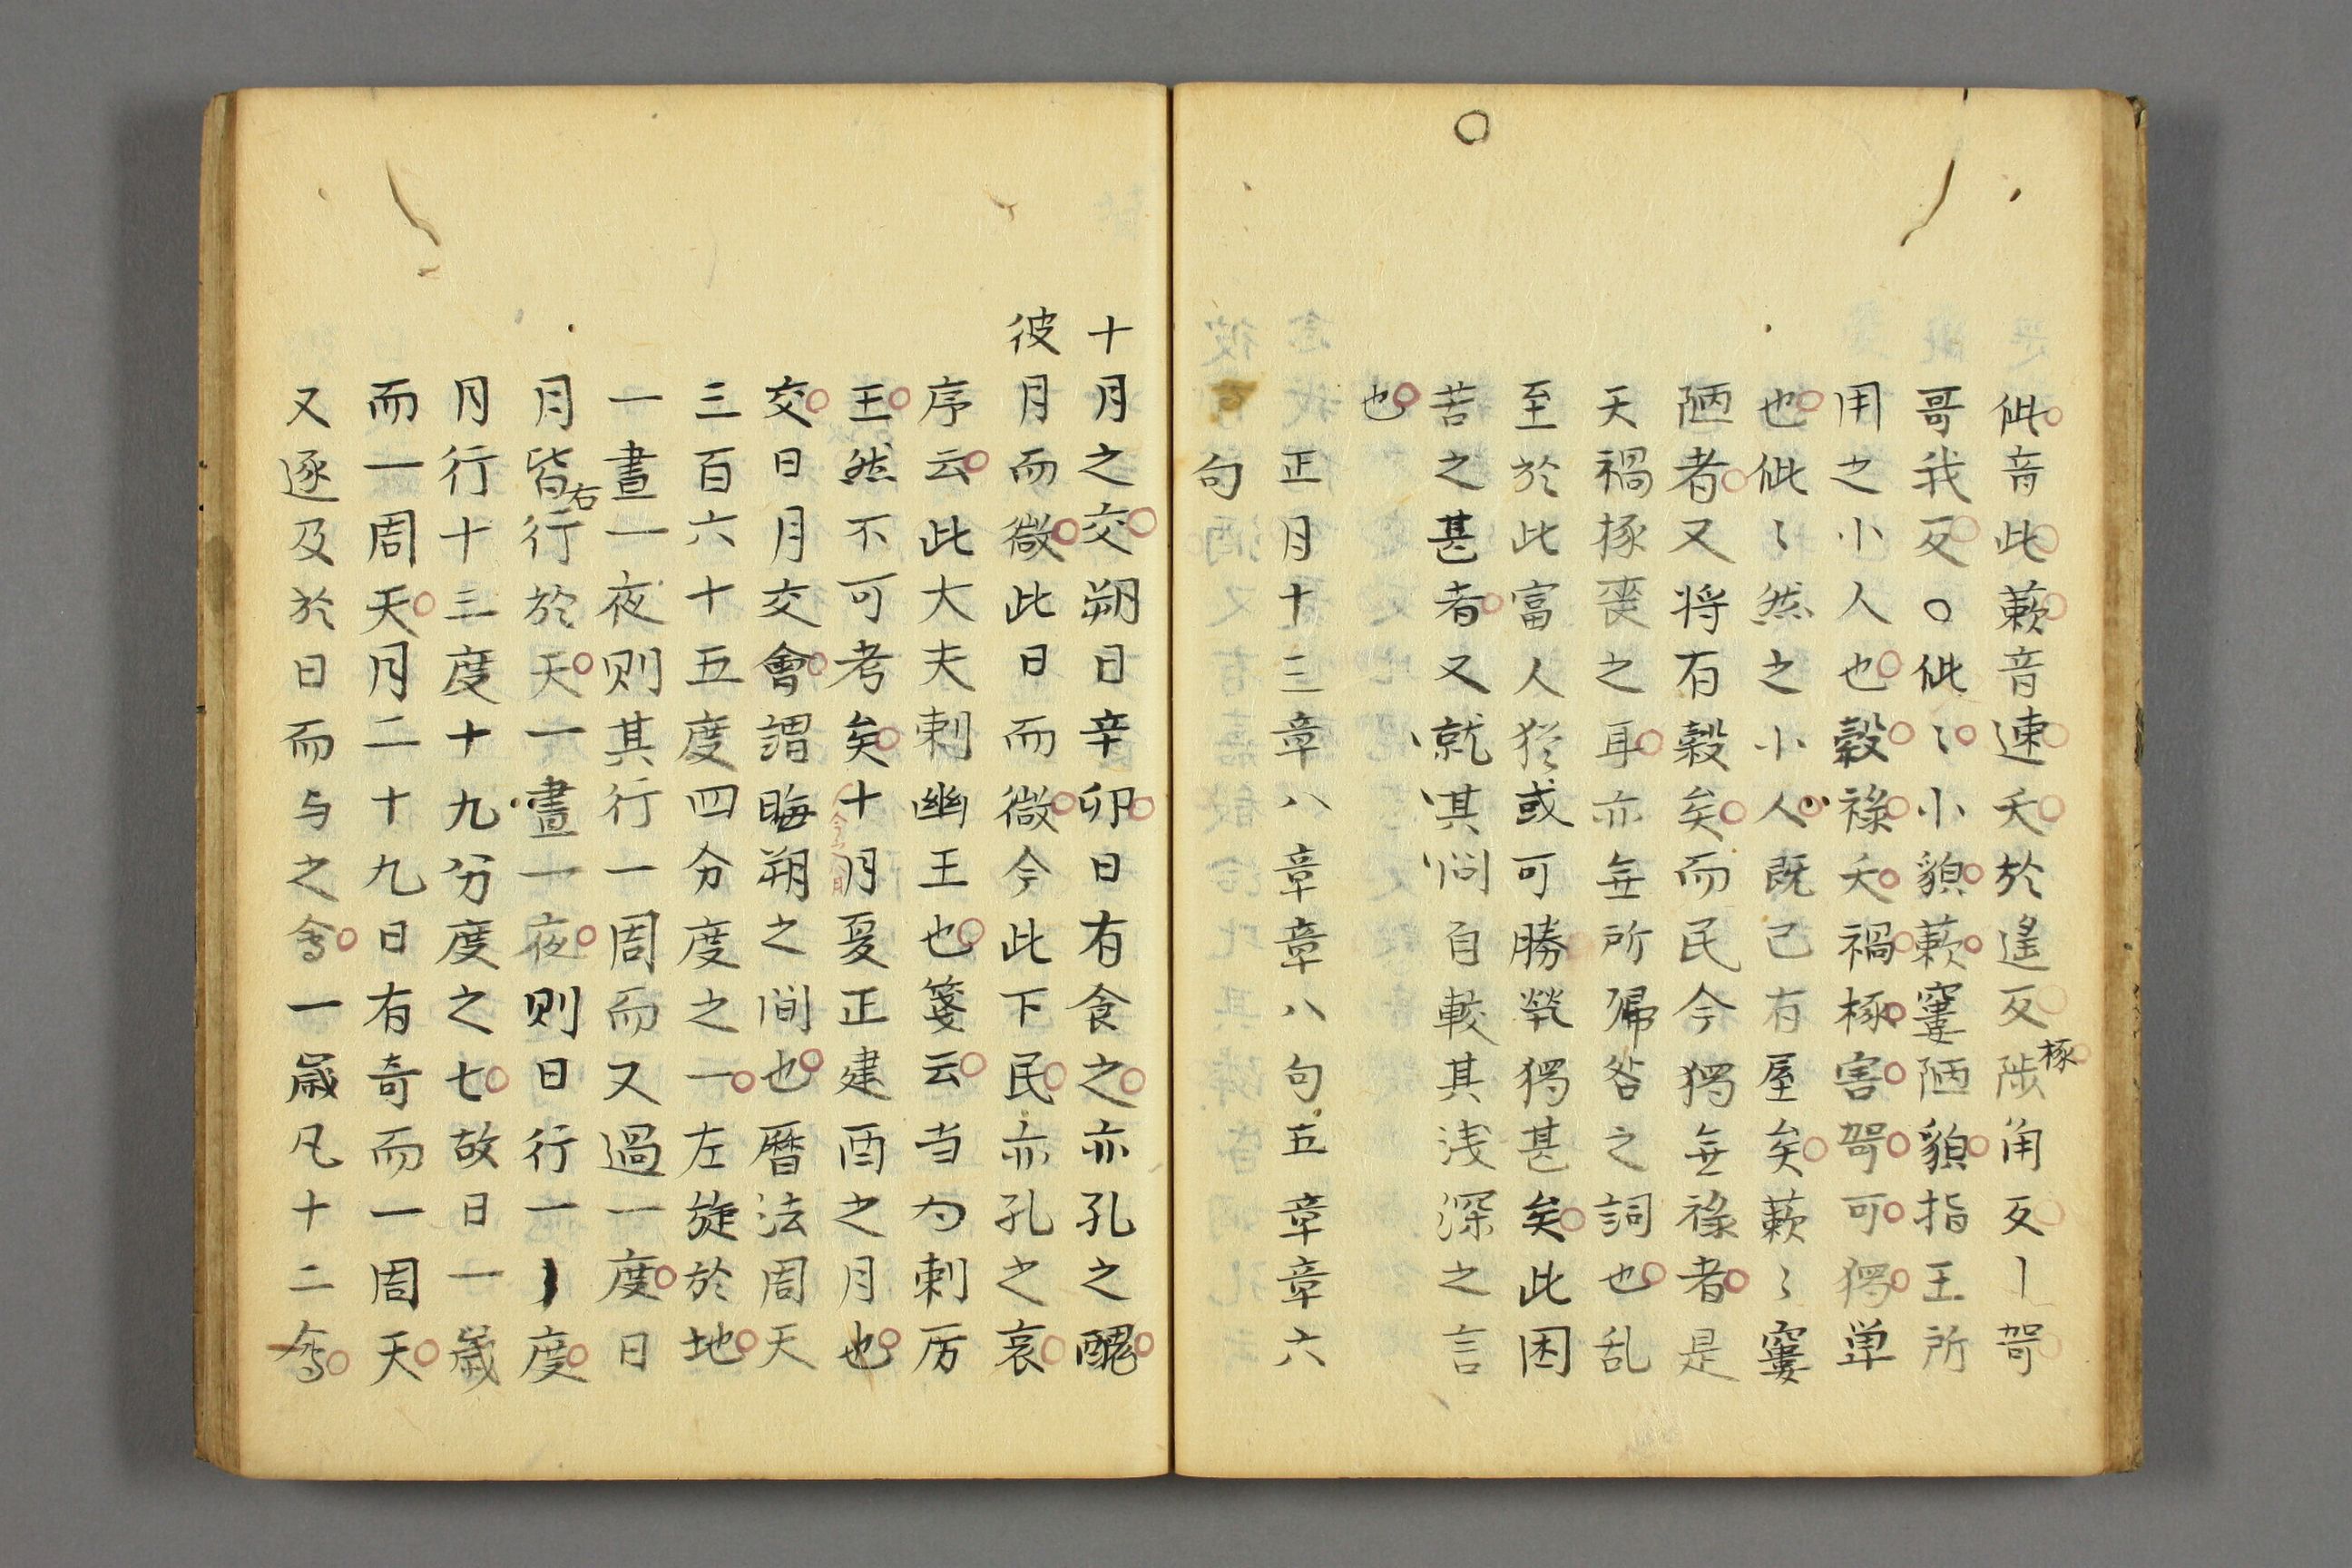 佌音此蔌音速夭於遥反陟角反丨哿
椓
哥我反○佌〻小貌蔌窶陋貌指王所
用之小人也穀禄夭禍椓害哿可獨単
也佌〻然之小人既已有屋矣蔌〻窶
陋者又将有穀矣而民今獨無禄者是
天禍椓喪之耳亦無所帰咎之詞也乱
至於此富人猶或可勝㷀獨甚矣此困
苦之甚者又就其問自較其浅深之言
也
正月十三章八章章八句五章章六
句
十月之交朔日辛卯日有食之亦孔之醜
彼月而微此日而微今此下民亦孔之哀
序云此大夫刺幽王也箋云当为刺厉
王然不可考矣十月夏正建酉之月也
交日月交會謂晦朔之间也暦法周天
三百六十五度四分度之一左旋於地
一晝一夜则其行一周而又過一度日
月皆行於天一晝一夜则日行一丨度
右
月行十三度十九分度之七故日一歳
而一周天月二十九日有奇而一周天
又逐及於日而与之會一歳凡十二會